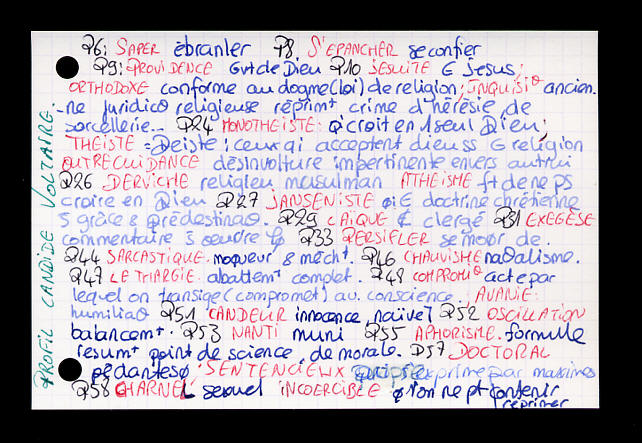 P6: SAPER ébranler P8 S'EPANCHER se confier
P9: PROVIDENCE Gvt de Dieu P10 JESUITE ∈ Jésus;
ORTHODOXE conforme au dogme (loi) de religion; INQUISIº ancien.
ne juridicº religieuse réprimt crime d'hérésie de
sorcellerie... P24 MONOTHEISTE: q' croit en 1 seul Dieu;
THEISTE = Deiste: ceux qi acceptent dieu ss ∈ religion
OUTRECUIDANCE désinvolture impertinente envers autrui
P26 DERVICHE religieux musulman ATHEISME ft de ne ps
croire en Dieu P27 JANSENISTE doctrine chrétienne
grâce & prédestinaº. P29 LAIQUE clergé P31 EXEGESE
commentaire P33 PERSIFLER se moqr de.
P44 SARCASTIQUE. moqueur & mécht. P46 CHAUVISME naºalisme.
P47 LETHARGIE. abattemt complet. P48 COMPROMIº acte par
lequel on transige (compromet) au. conscience. AVANIE:
humiliaº P51 CANDEUR innocence, naïveT P52 OSCILLATION
balancemt. P53 NANTI muni P55 APHORISME. formule
résumt point de science, de morale. P57 DOCTORAL
SENTENCIEUX exprime par maximes
P58 CHARNEL sexuel INCOERCIBLE q l'on ne pt contenir
réprimer
PROFIL CANDIDE VOLTAIRE